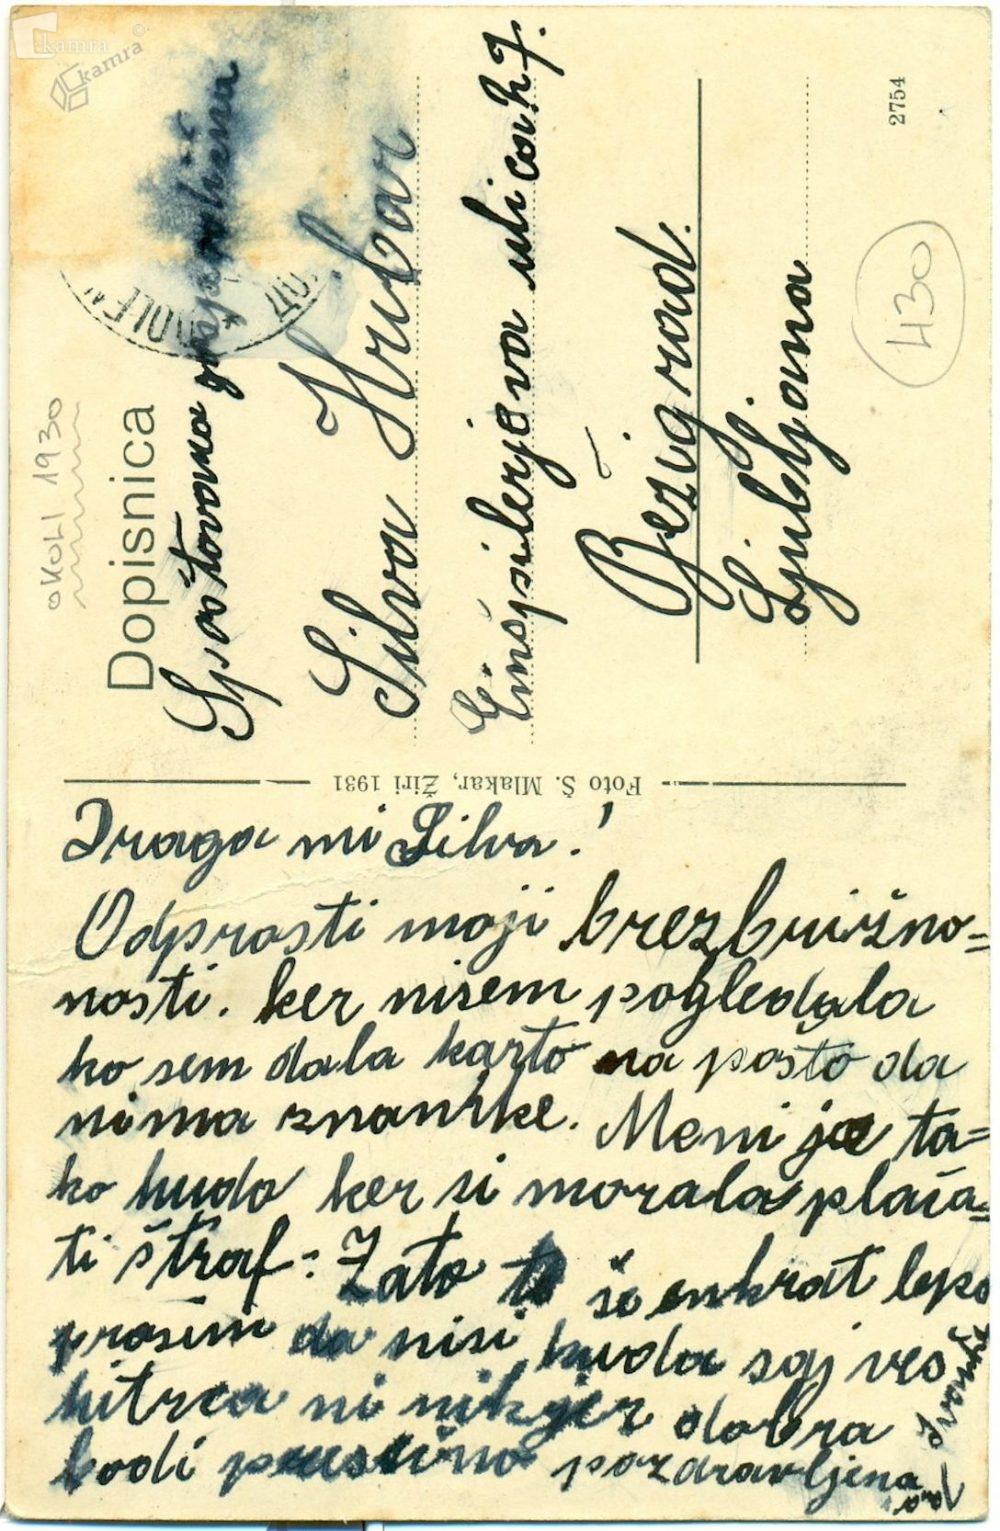 kamra
kamra
©
OKOLI 1930
Dopisnica
Spoštovana gospa
Silva Hribar
Einšpilerjeva ulica h 7.
Bežigrad.
Ljubljana
2754
430
Foto Š. Mlakar, Žiri 1931
Draga mi Silva!
Odprosti moji brezbrižno=
nosti. ker nisem pogledala
ko sem dala karto na pošto da
nima znamke. Meni je ta=
ko hudo ker si morala plača=
ti štraf. Zato te še enkrat lepo
prosim da nisi huda saj ves
hitrca ni nikjer dobra
bodi pozdravljena